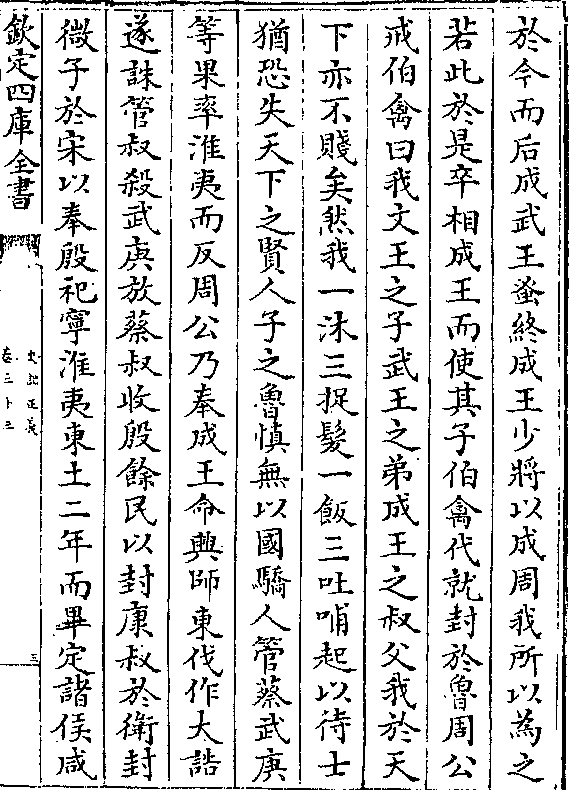 於今而后成武王蚤終成王少將以成周我所以為之
若此於是卒相成王而使其子伯禽代就封於魯周公
戒伯禽曰我文王之子武王之弟成王之叔父我於天
下亦不賤矣然我一沐三捉髮一飯三吐哺起以待士
猶恐失天下之賢人子之魯慎無以國驕人管蔡武庚
等果率淮夷而反周公乃奉成王命興師東伐作大誥
遂誅管叔殺武庚放蔡叔收殷餘民以封康叔於衛封
微子於宋以奉殷祀寧淮夷東土二年而畢定諸侯咸
欽定四庫全書
史記正義
卷三十三
三